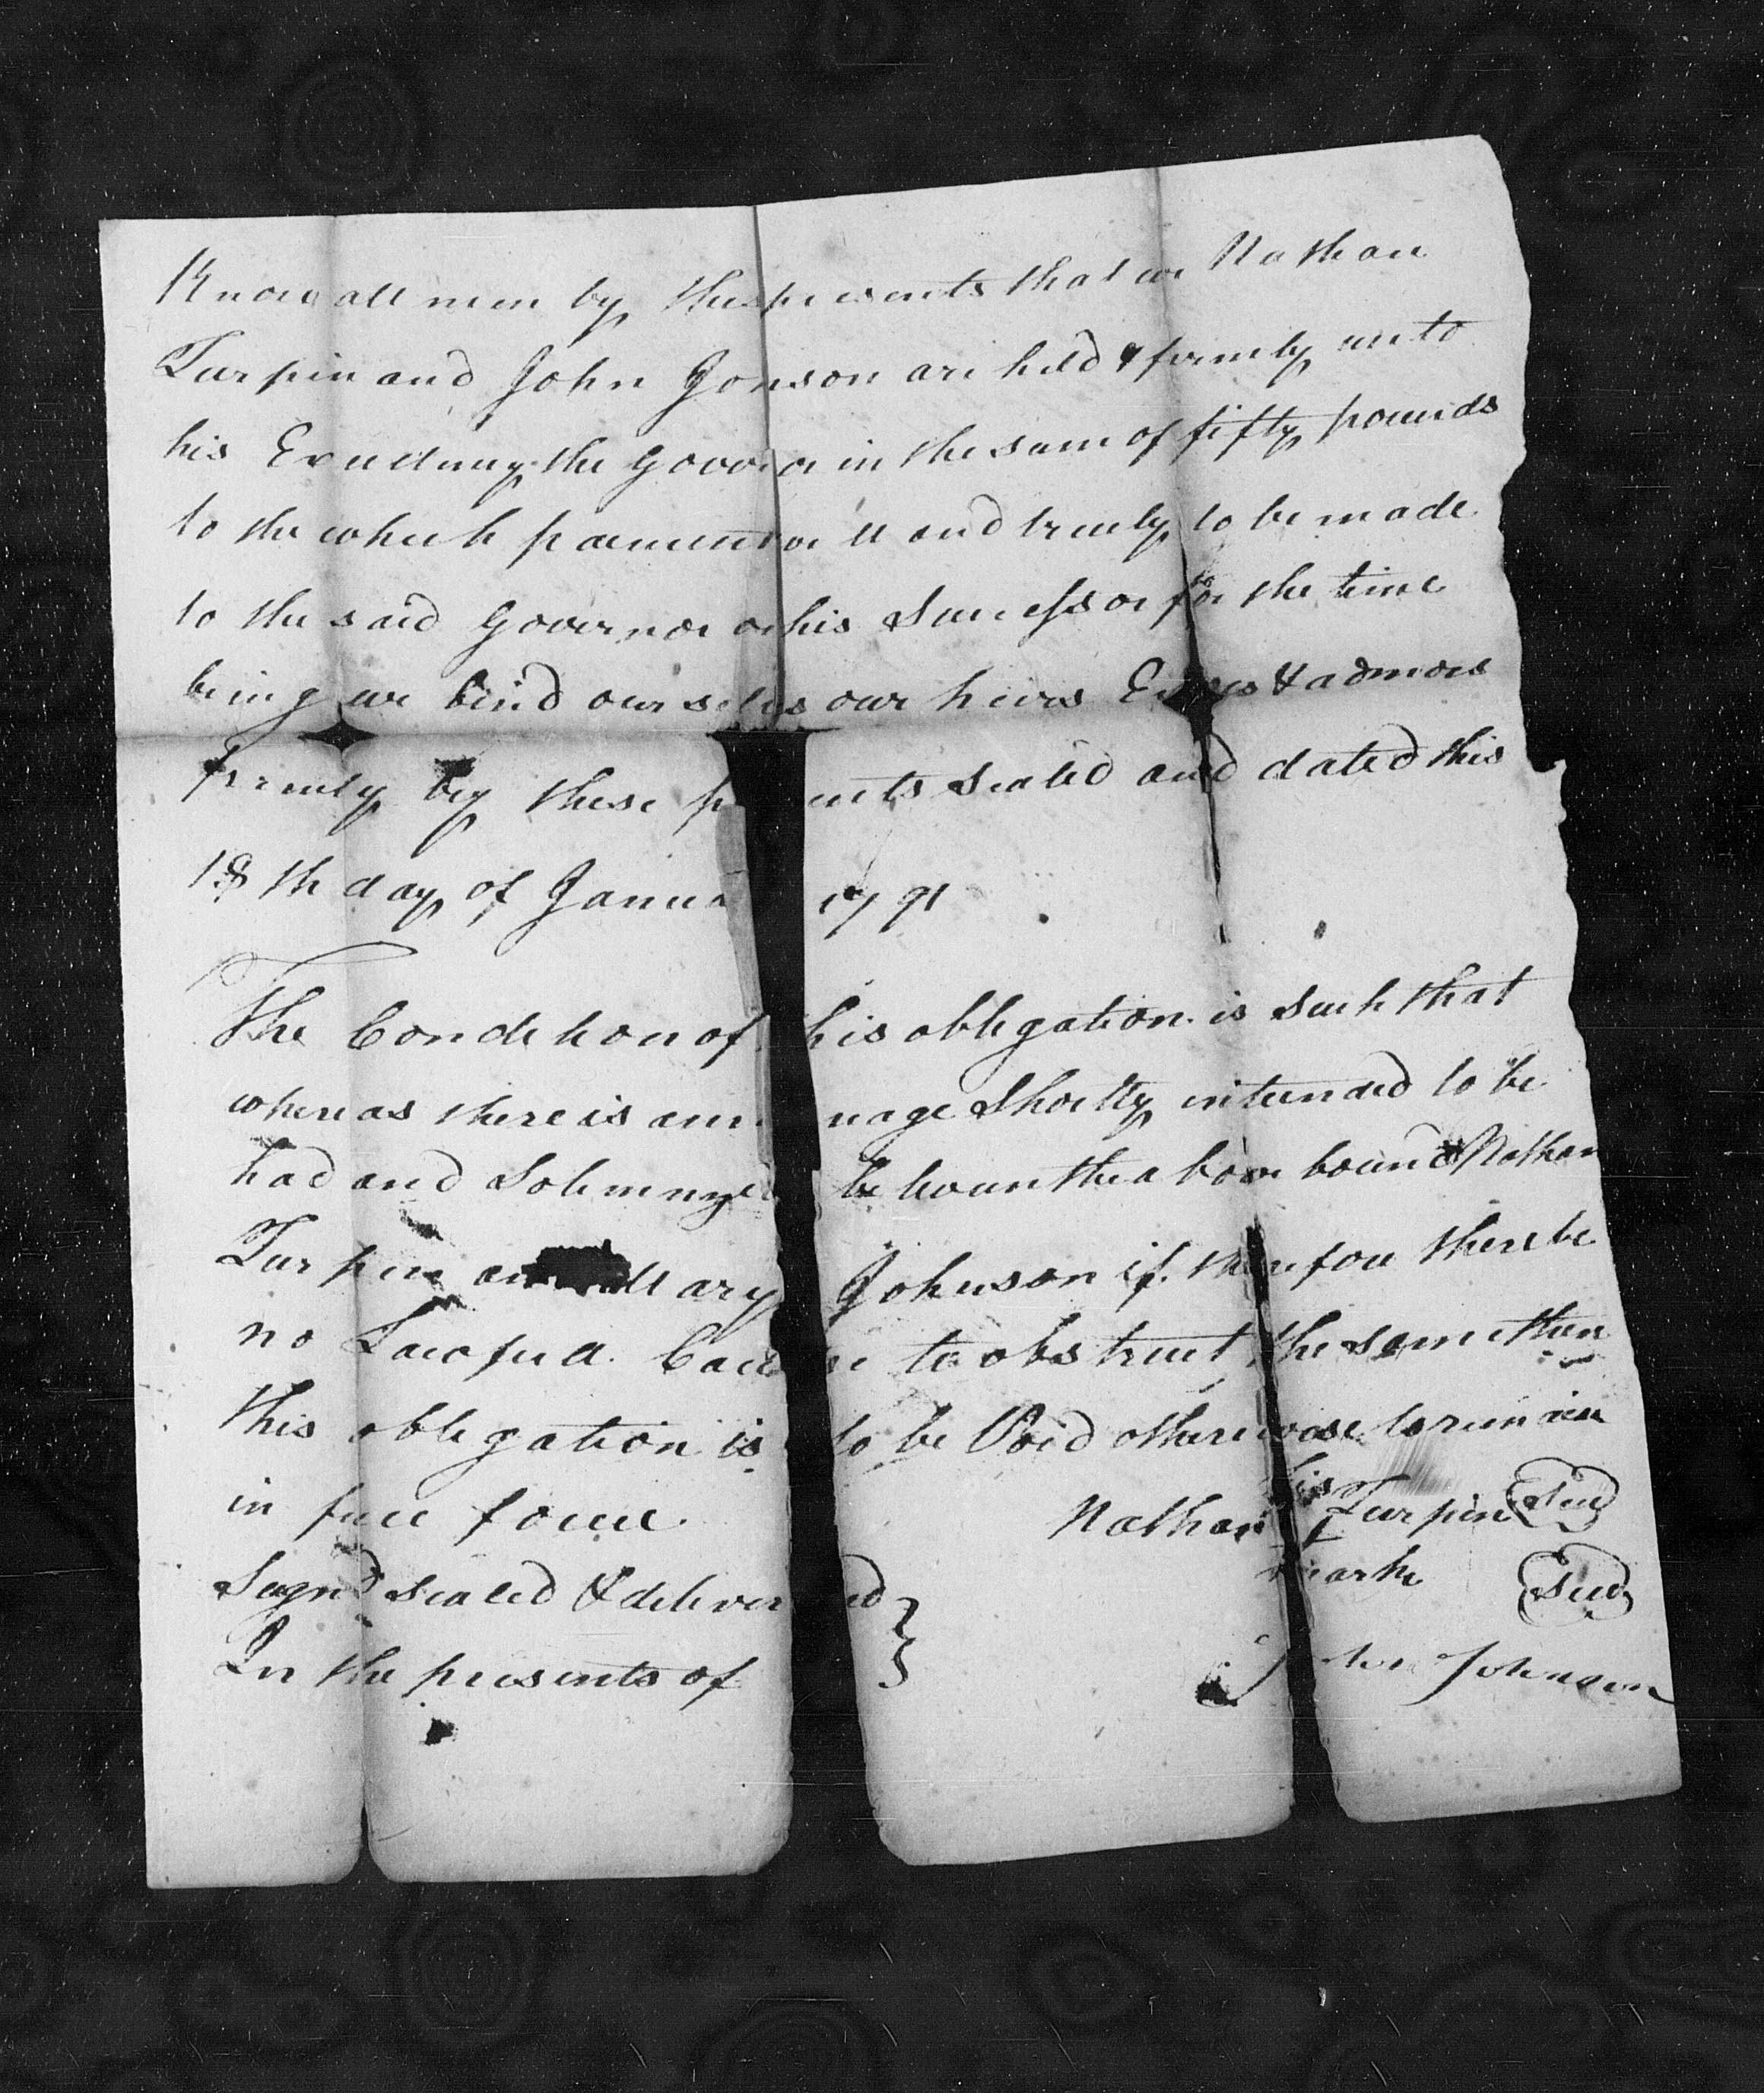 Know all men by these presents that we Nathan
Turpin and John Jonson are held & firmly unto
his Excellency the Govenor in the sum of fifty pounds
to the which paement well and truely to be made
to the said Governor or his Sucessor for the time
being we bind our selves our heirs Exors & admors
firmly by these p ents sealed and dated this
18th day of Janua 1791
The Condetion of this oblegation is such that
whereas there is a mar riage Shortly inteended to be
had and Solemnyzed be tween the above bound Nathan
Turpin and Mary Johnson if therefore there be
no Lawfull Cause to obstruct the same then
this oblegation is to be Void otherewase to remain
in full force
his
Nathan Turpin Seal
mark
Sign'd sealed & deliver ed
Seal
In the presents of
John Johnson